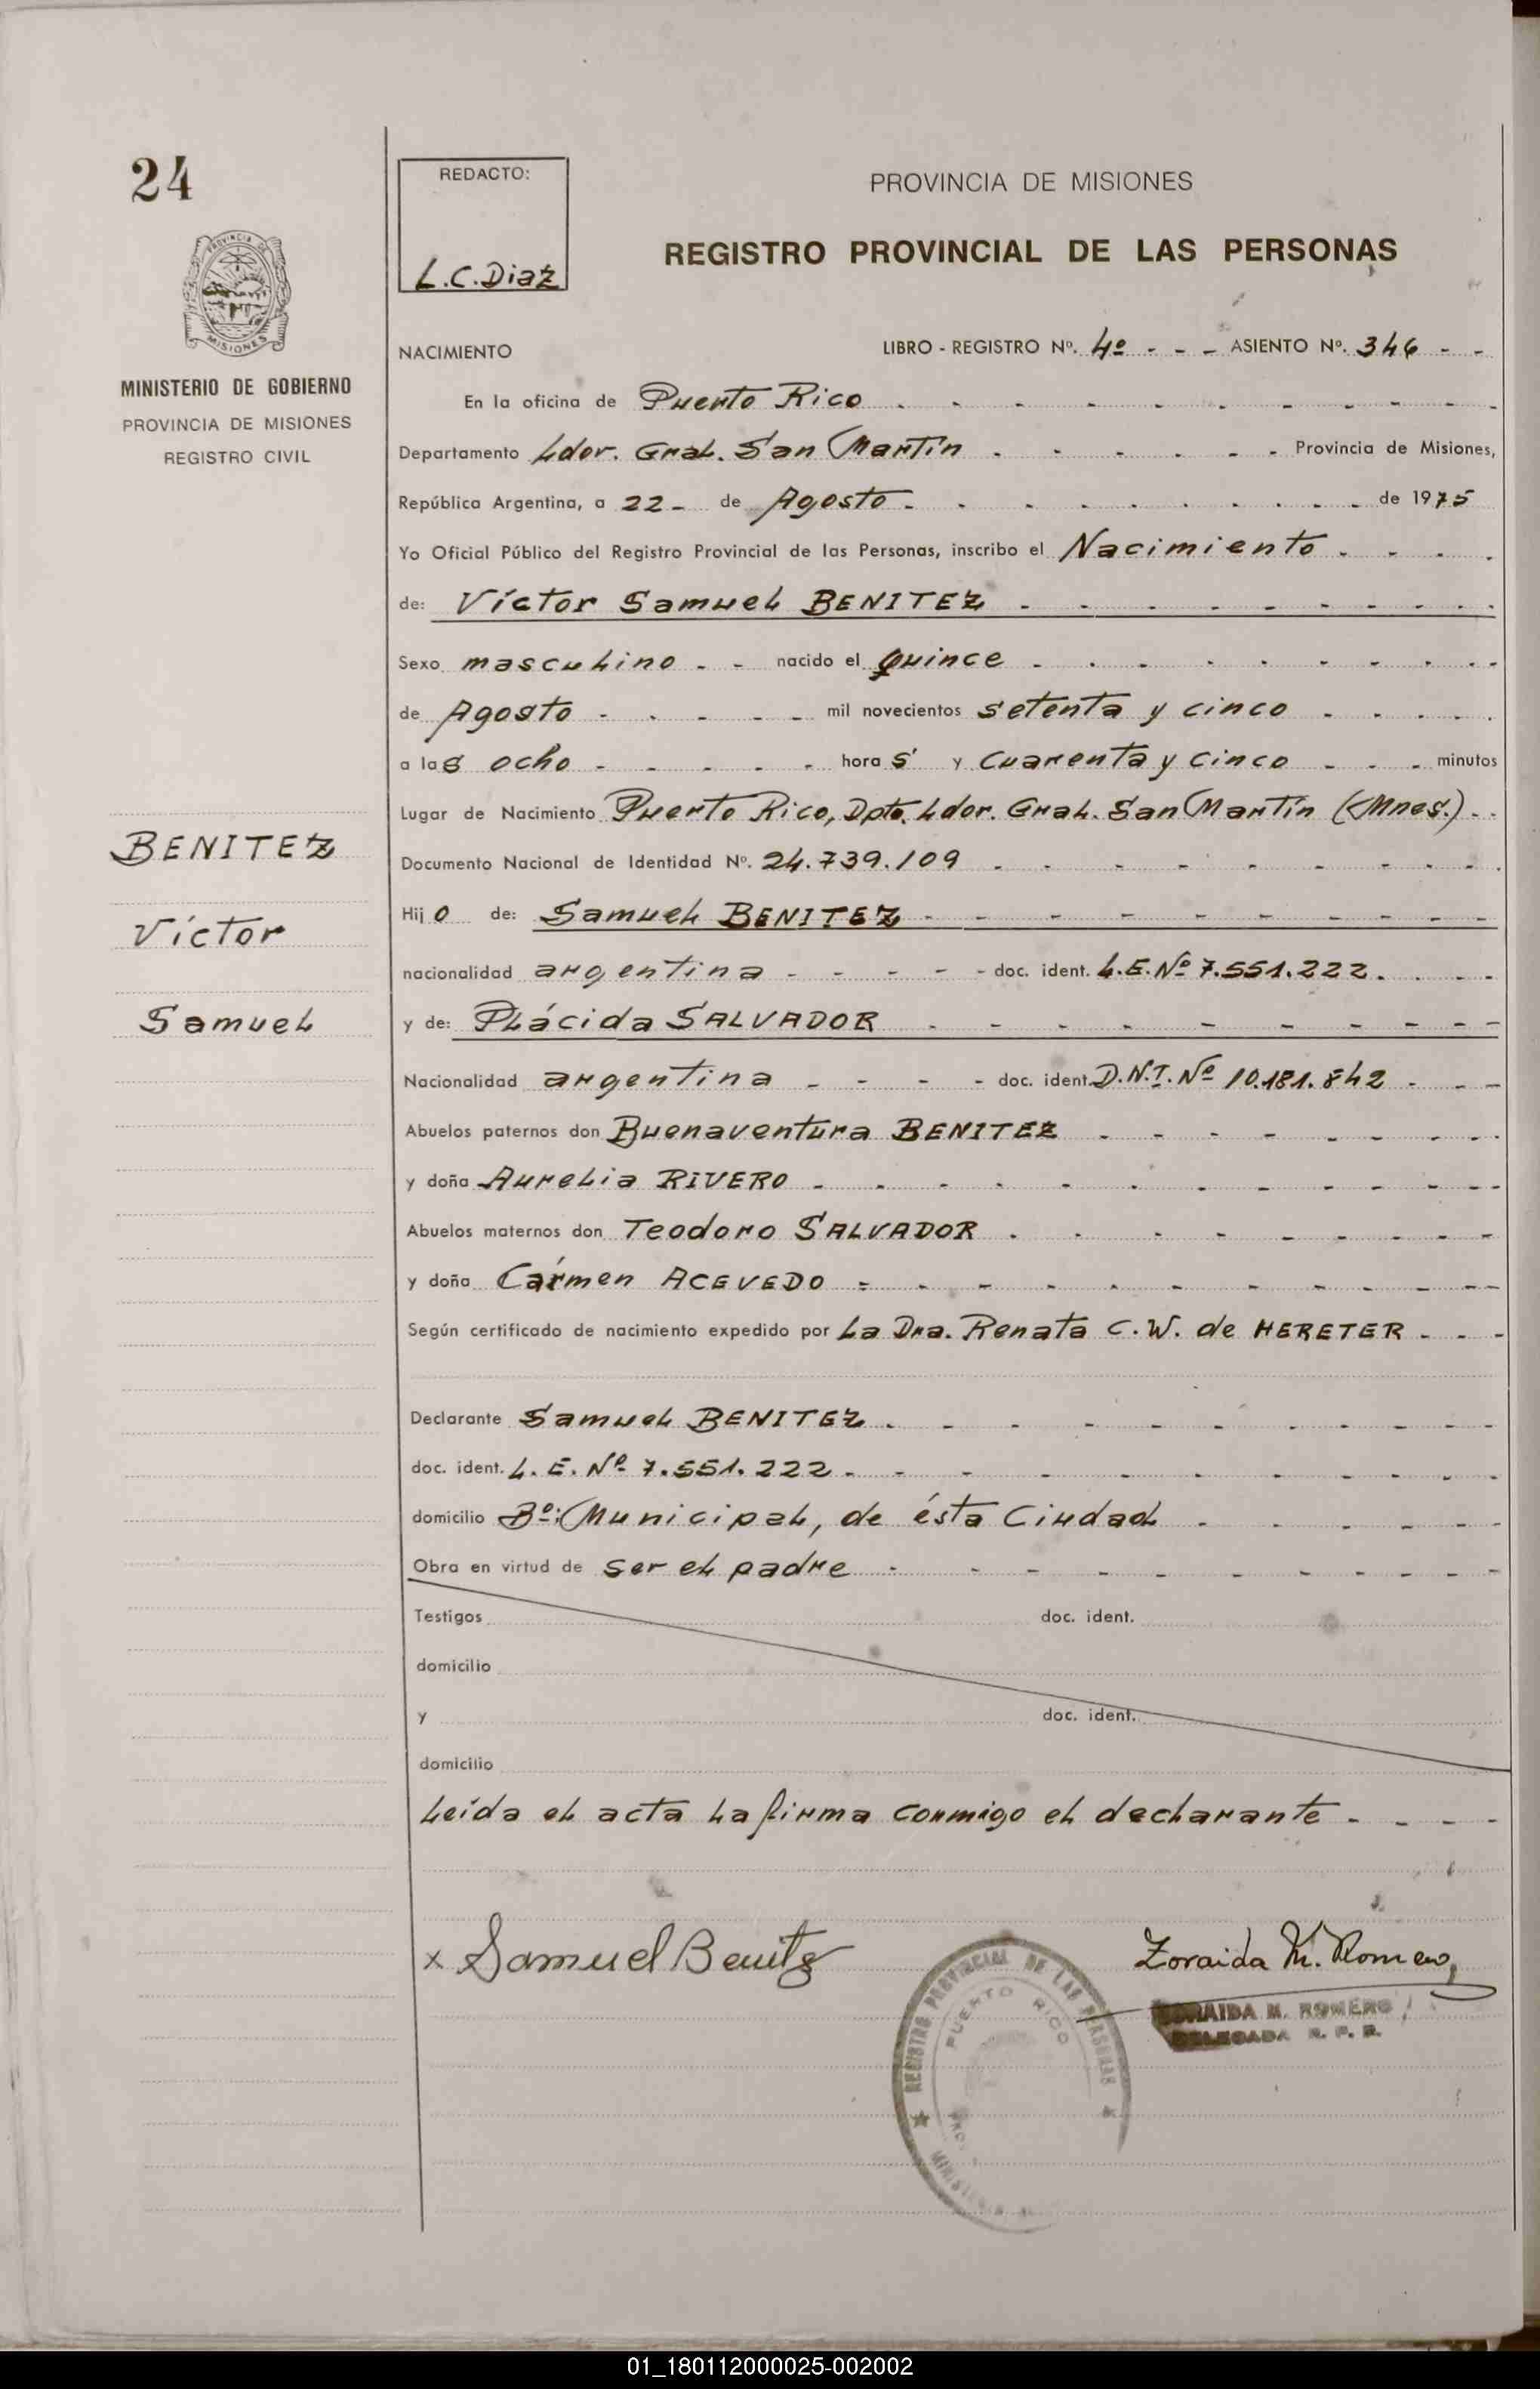 24
REDACTO:
L.C. Diaz
PROVINCIA DE MISIONES
REGISTRO PROVINCIAL DE LAS PERSONAS
PROVINCIA DE
MISIONES
MINISTERIO DE GOBIERNO
PROVINCIA DE MISIONES
REGISTRO CIVIL
NACIMIENTO LIBRO - REGISTRO Nº. 4º - - - ASIENTO Nº. 346 - -
En la oficina de Puerto Rico
Departamento Ldor. Gral. San Martín Provincia de Misiones,
República Argentina, a 22 - de Agosto de 1975
Yo Oficial Público del Registro Provincial de las Personas, inscribo el Nacimiento
de: Víctor Samuel BENITEZ
Sexo masculino - - nacido el quince
de Agosto mil novecientos setenta y cinco
a las ocho horas y cuarenta y cinco minutos
Lugar de Nacimiento Puerto Rico, Dpto. Ldor. Gral. San Martín (Mnes.)
Documento Nacional de Identidad Nº. 24.739.109
Hijo de: Samuel BENITEZ
nacionalidad argentina doc. ident. L.E. Nº 7.551.222
y de: Plácida SALVADOR
Nacionalidad argentina doc. ident. D.N.I. Nº 10.181.842
Abuelos paternos don Buenaventura BENITEZ
y doña Aurelia RIVERO
Abuelos maternos don Teodoro SALVADOR
y doña Cármen ACEVEDO
Según certificado de nacimiento expedido por La Dra. Renata C.W. de HERETER
Declarante Samuel BENITEZ
doc. ident. L.E. Nº 7.551.222
domicilio Bº: Municipal, de ésta Ciudad
Obra en virtud de ser el padre
Testigos doc. ident.
domicilio
y doc. ident.
domicilio
Leída el acta la firma conmigo el declarante
BENITEZ
Víctor
Samuel
x Samuel Benitez
Zoraida M. Romero
ZORAIDA M. ROMERO
DELEGADA R. P. P.
REGISTRO PROVINCIAL DE LAS PERSONAS
PUERTO RICO
01_180112000025-002002